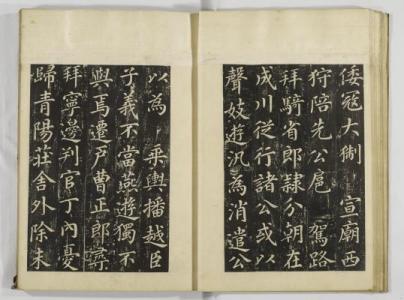 倭寇大衂 宣廟西
狩陪先公扈 駕路
拜騎省郎隷分朝在
成川從行諸公或以
聲妓遊汎為消遣公
以為 乘輿播越臣
子義不當燕遊獨不
與焉遷戶曹正郎尋
拜寧邊判官丁內憂
歸青陽莊舍外除未